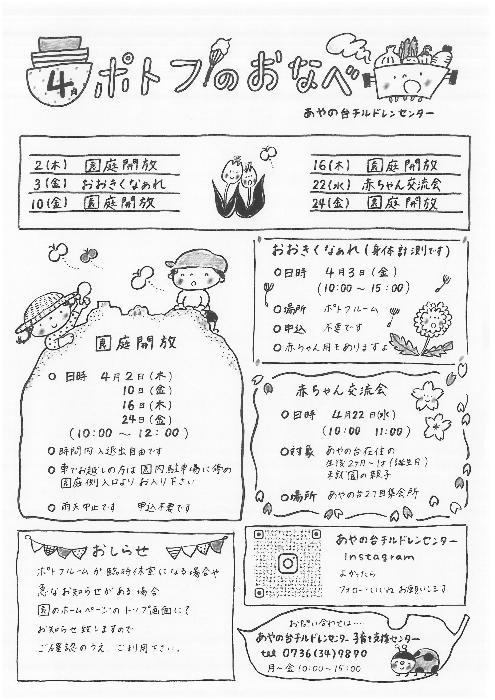 4月 ポトフのおなべ
あやの台チルドレンセンター
2(木) 園庭開放
3(金) おおきくなぁれ
10(金) 園庭開放
16(木) 園庭開放
22(水) 赤ちゃん交流会
24(金) 園庭開放
おおきくなぁれ(身体計測です)
○日時 4月3日(金)
(10:00〜15:00)
○場所 ポトフルーム
○申込 不要です
○赤ちゃん月もありますよ
園庭開放
○日時 4月2日(木)
10日(金)
16日(木)
24日(金)
(10:00〜12:00)
○時間内入退出自由です
○車でお越しの方は園内駐車場に停め
園庭側入口よりお入り下さい
○雨天中止です 申込不要です
赤ちゃん交流会
○日時 4月22日(水)
(10:00 11:00)
○対象 あやの台在住の
生後2ヶ月〜1才(誕生月)
未就園の親子
○場所 あやの台2丁目集会所
おしらせ
ポトフルームが臨時休室になる場合や
急なお知らせがある場合
園のホームページのトップ画面にて
お知らせ致しますので
ご確認のうえ、ご利用下さい。
あやの台チルドレンセンター
Instagram
よかったら
フォロー・いいね お願いします
お問い合わせは…
あやの台チルドレンセンター 子育て支援センター
tel 0736(34)9870
月〜金 10:00〜15:00